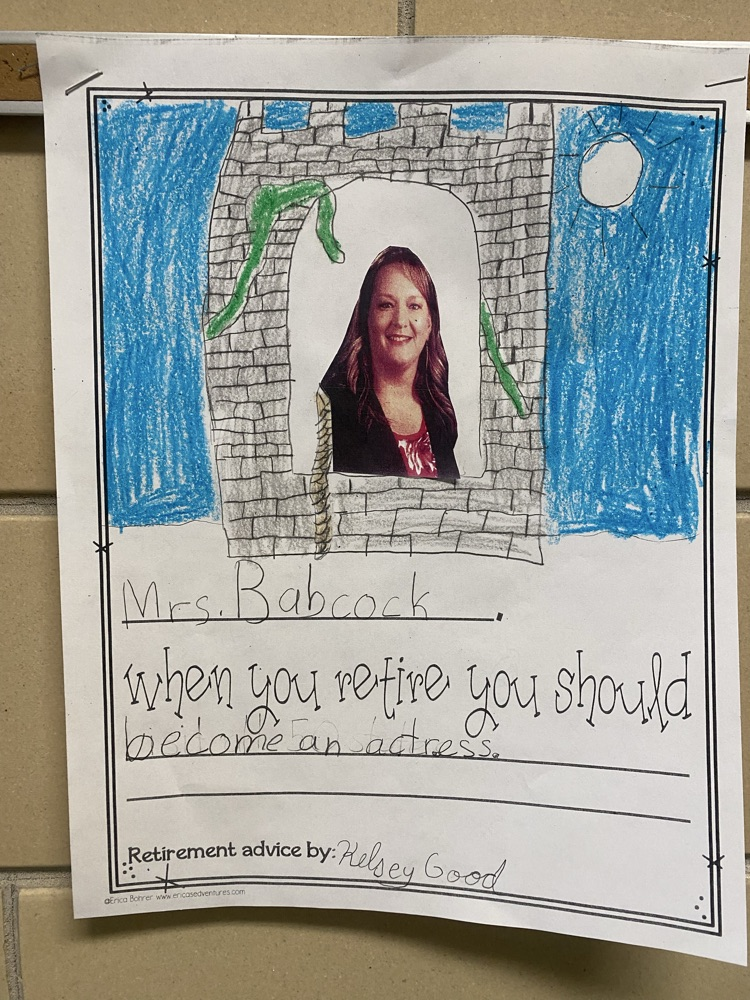 Mrs. Babcock.
when you retire you should
become an actress.
Retirement advice by: Kelsey Good
©Erica Bohrer www.ericasedventures.com